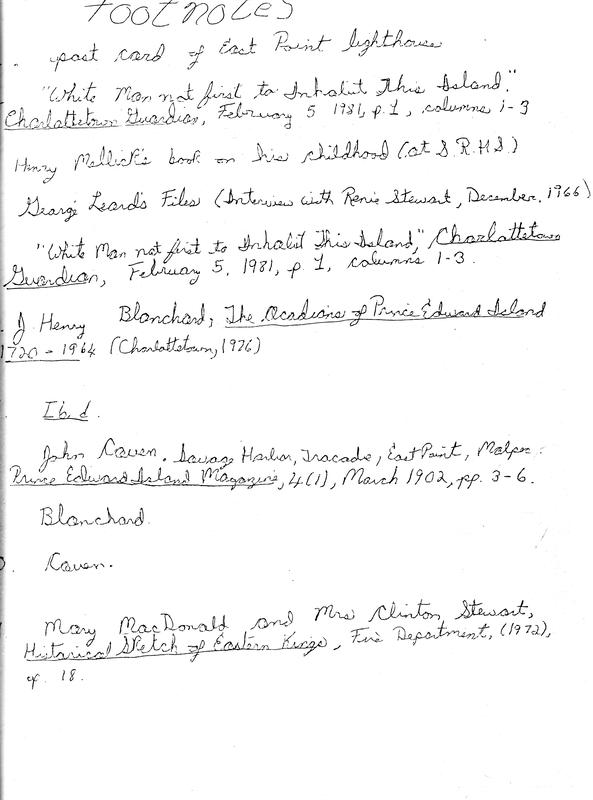 Footnotes
. post card of East Point lighthouse
"White Man not first to Inhabit This Island."
Charlottetown Guardian, February 5 1981, p. 1, columns 1-3
Henry Mellick's book on his childhood (at S.R.H.S)
George Leard's Files (Interview with Renie Stewart, December, 1966)
"White Man not first to Inhabit This Island," Charlottetown
Guardian, February 5, 1981, p 1, columns 1-3.
J Henry Blanchard, The Acadians of Prince Edward Island
1720 - 1964 (Charlottetown, 1976)
Ibid.
John Caven. Savage Harbor, Tracadie, East Point, Malpec.
Prince Edward Island Magazine, 4(1), March 1902, pp. 3-6.
Blanchard.
Caven.
Mary MacDonald and Mrs Clinton Stewart,
Historical Sketch of Eastern Kings, Fire Department, (1972),
p. 18.